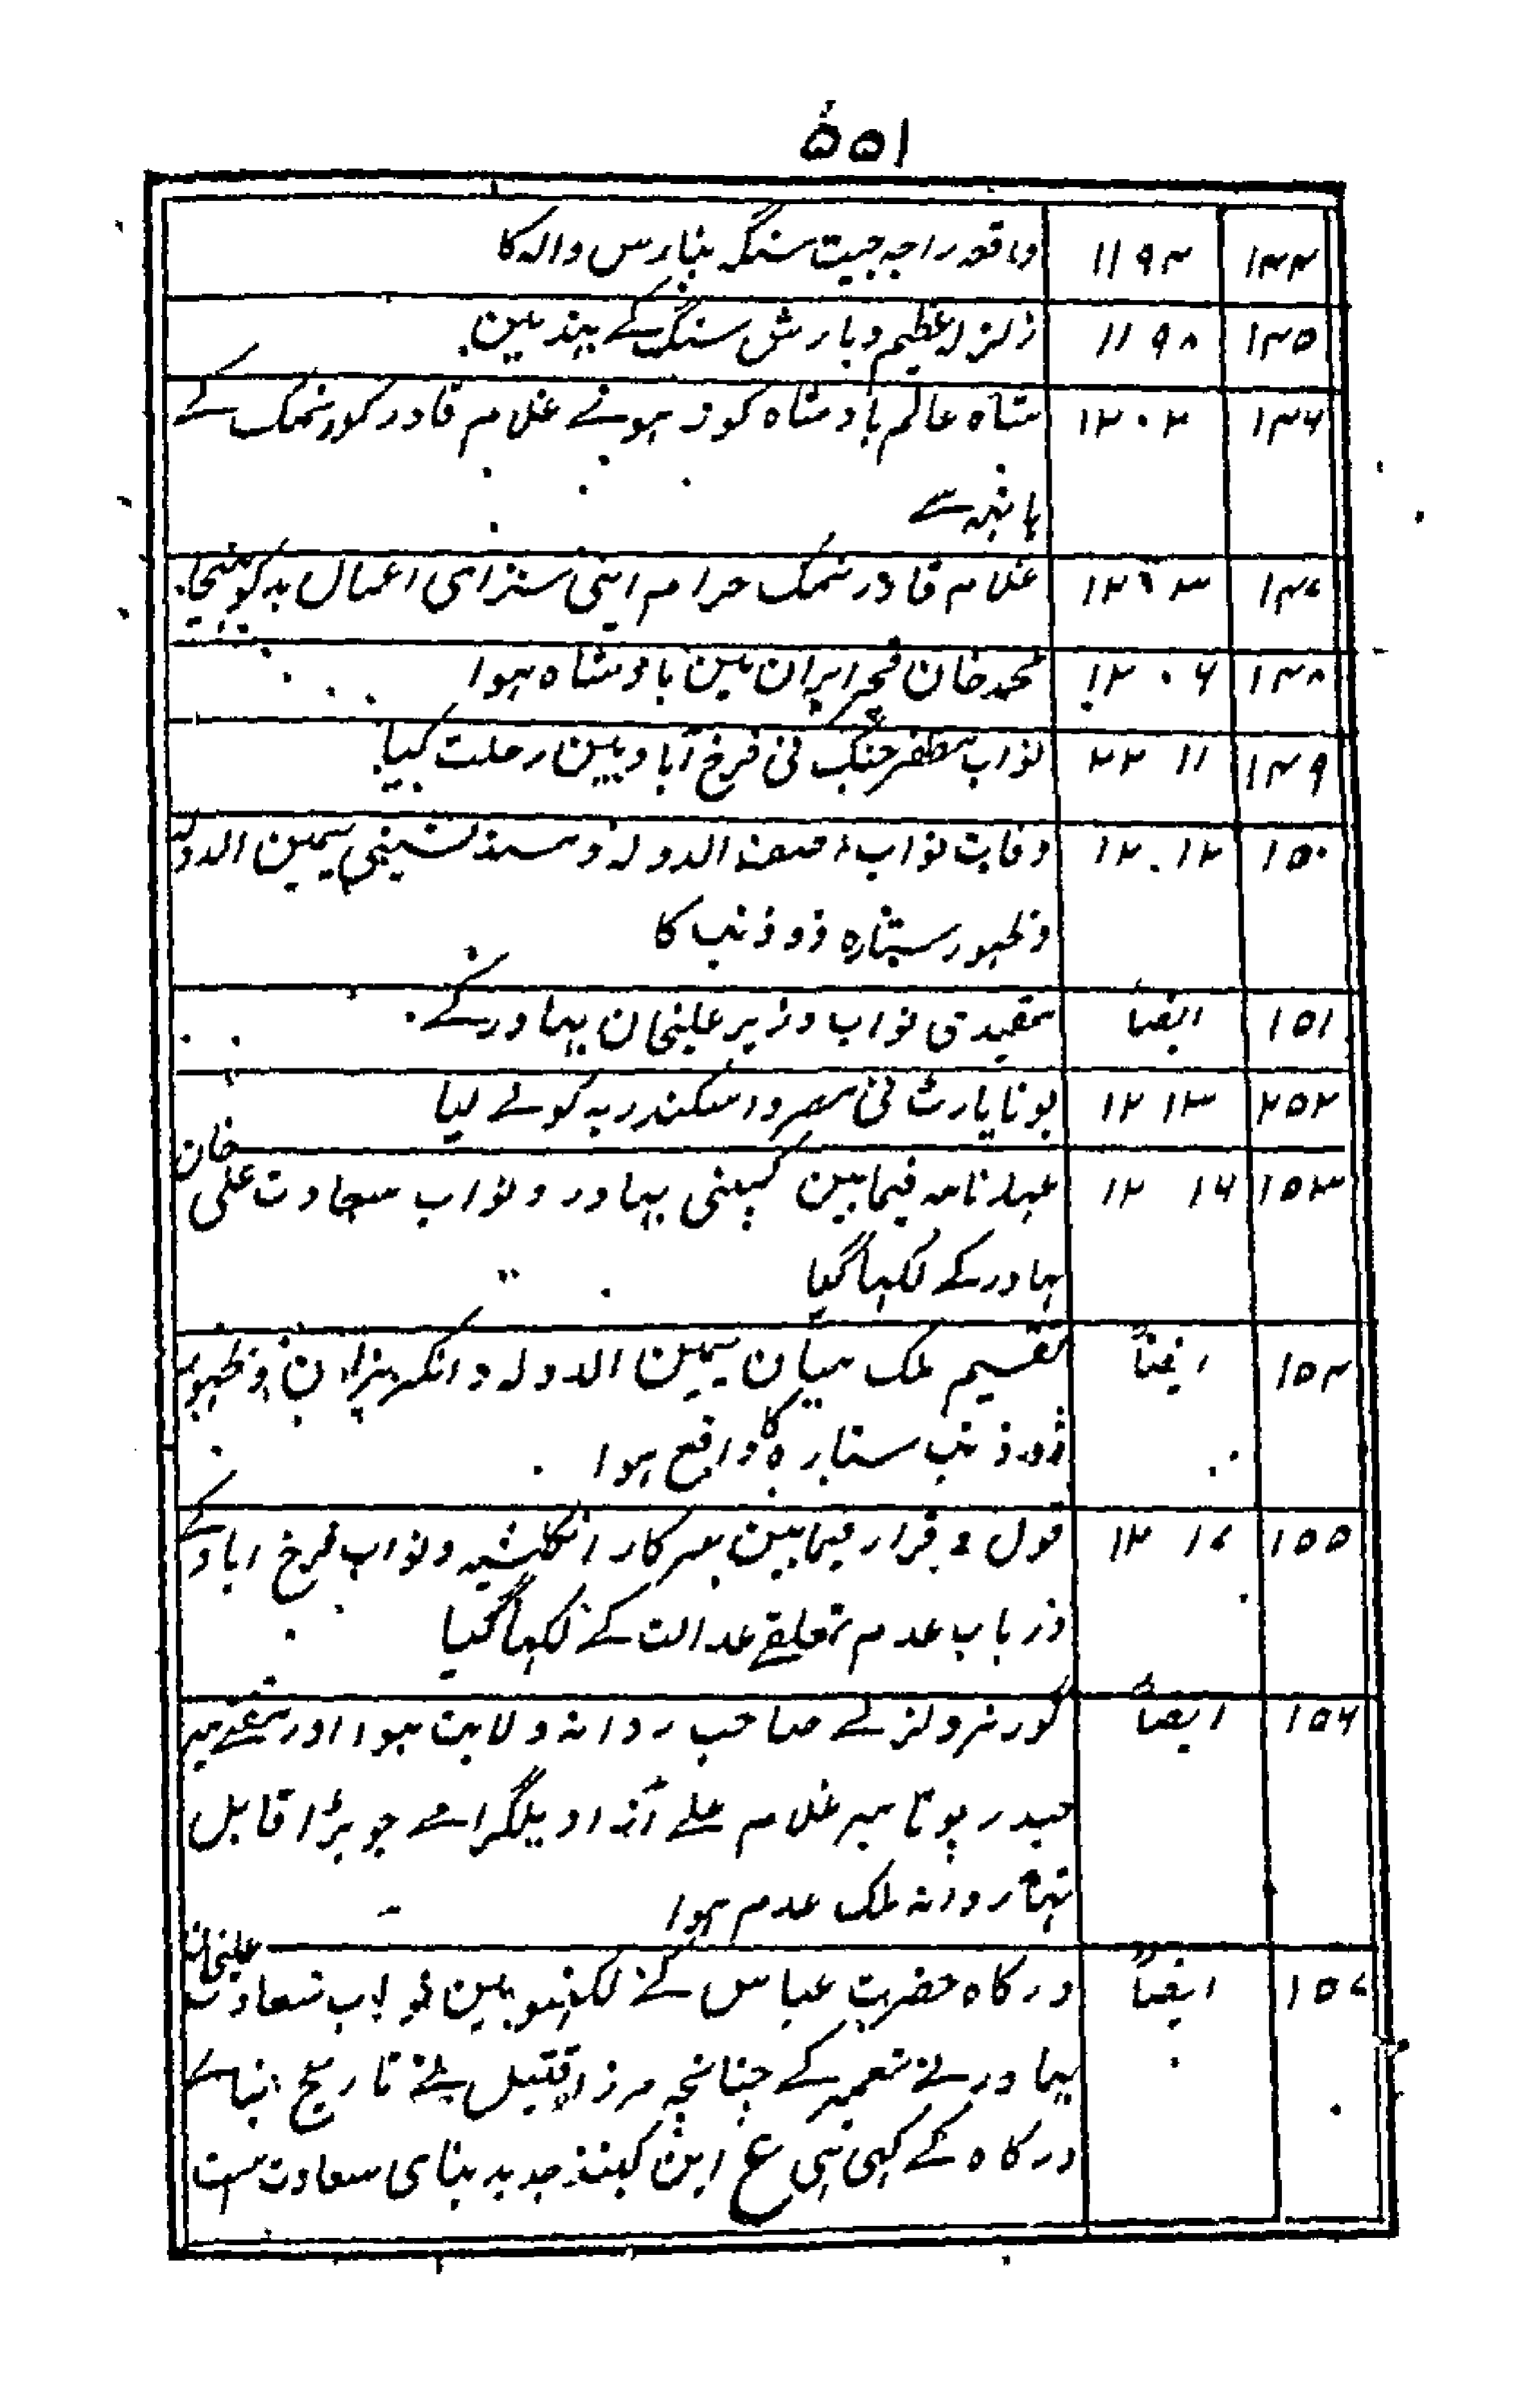 ۵۵۱
۱۴۴ ۱۱۹۴ واقعہ راجہ جیت سنگہ بنارس والہ کا
۱۴۵ ۱۱۹۸ زلزلہ عظیم و بارش سنگ کے ہند مین
۱۴۶ ۱۲۰۲ شاہ عالم بادشاہ کور ہونے غلام قادر کور نمک کے
ہاتہہ سے
۱۴۷ ۱۲۰۳ غلام قادر نمک حرام اپنی سزای اعمال بد کو پہنچا
۱۴۸ ۱۲۰۶ محمد خان قجر ایران مین بادشاہ ہوا
۱۴۹ ۱۱ ۲۲ نواب مظفر جنگ نی فرخ آباد مین رحلت کیا
۱۵۰ ۱۲۰۱۲ وفات نواب اصف الدولہ و مسند نشینی یمین الدولہ
و ظہور ستارہ ذو ذنب کا
۱۵۱ ایضاً مقیدی نواب وزیر علیخان بہادر کے
۲۵۲ ۱۲۱۳ بوناپارٹ نی مصر و اسکندریہ کو لے لیا
۱۵۳ ۱۲۱۶ عہد نامہ فیمابین کمپنی بہادر و نواب سعادت علی خان
بہادر کے لکہا گیا
۱۵۴ ایضاً تقسیم ملک میان یمین الدولہ و انگریزان و ظہور
ذو ذنب ستارہ کا واقع ہوا
۱۵۵ ۱۲۱۷ قول و قرار فیمابین سرکار انگلشیہ و نواب فرخ اباد کے
در باب عدم تعلق عدالت کے لکہا گیا
۱۵۶ ایضاً گورنر ولزلے صاحب روانہ ولایت ہوا اور میر
حیدر پوتا میر غلام علے آزاد بلگرامے جو بڑا قابل
تہا روانہ ملک عدم ہوا
۱۵۷ ایضاً درگاہ حضرت عباس کے لکہنو مین نواب سعادت علیخان
بہادر نے تعمیر کے چنانچہ مرزا قتیل نے تاریخ بنا کے
درگاہ کے کہی تہی ع این گنبد جدید بنای سعادت ست